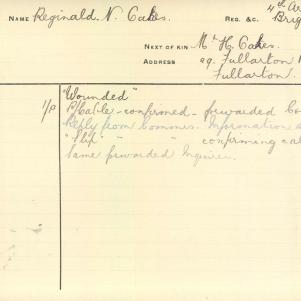 NAME Reginald N. Oakes. REG. &C. 4th Ar
Brig
NEXT OF KIN Mr H. Oakes.
ADDRESS 29. Fullarton
Fullarton.
"Wounded"
1/p P/Cable - confirmed - forwarded Co
Reply from Commrs. Information
"Slip" " confirming cab
Same forwarded Inquirer.